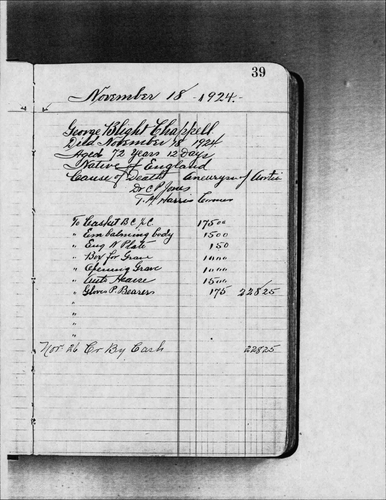 39
November 18 - 1924.
George Blight Chappell
Died November 18 1924
Aged 72 Years 12 Days
Native of England
Cause of Death Aneurysm of Aorta
Dr C P Jones
T. M Harris Coroner
To Casket B.C. 175 00
" Embalming body 15 00
" Eng N Plate 1 50
" Box for Grave 10 00
" Opening Grave 10 00
" Auto Hearse 15 00
" Gloves P. Bearers 1 75 228 25
"
"
"
Nov 26 Cr By Cash 228 25